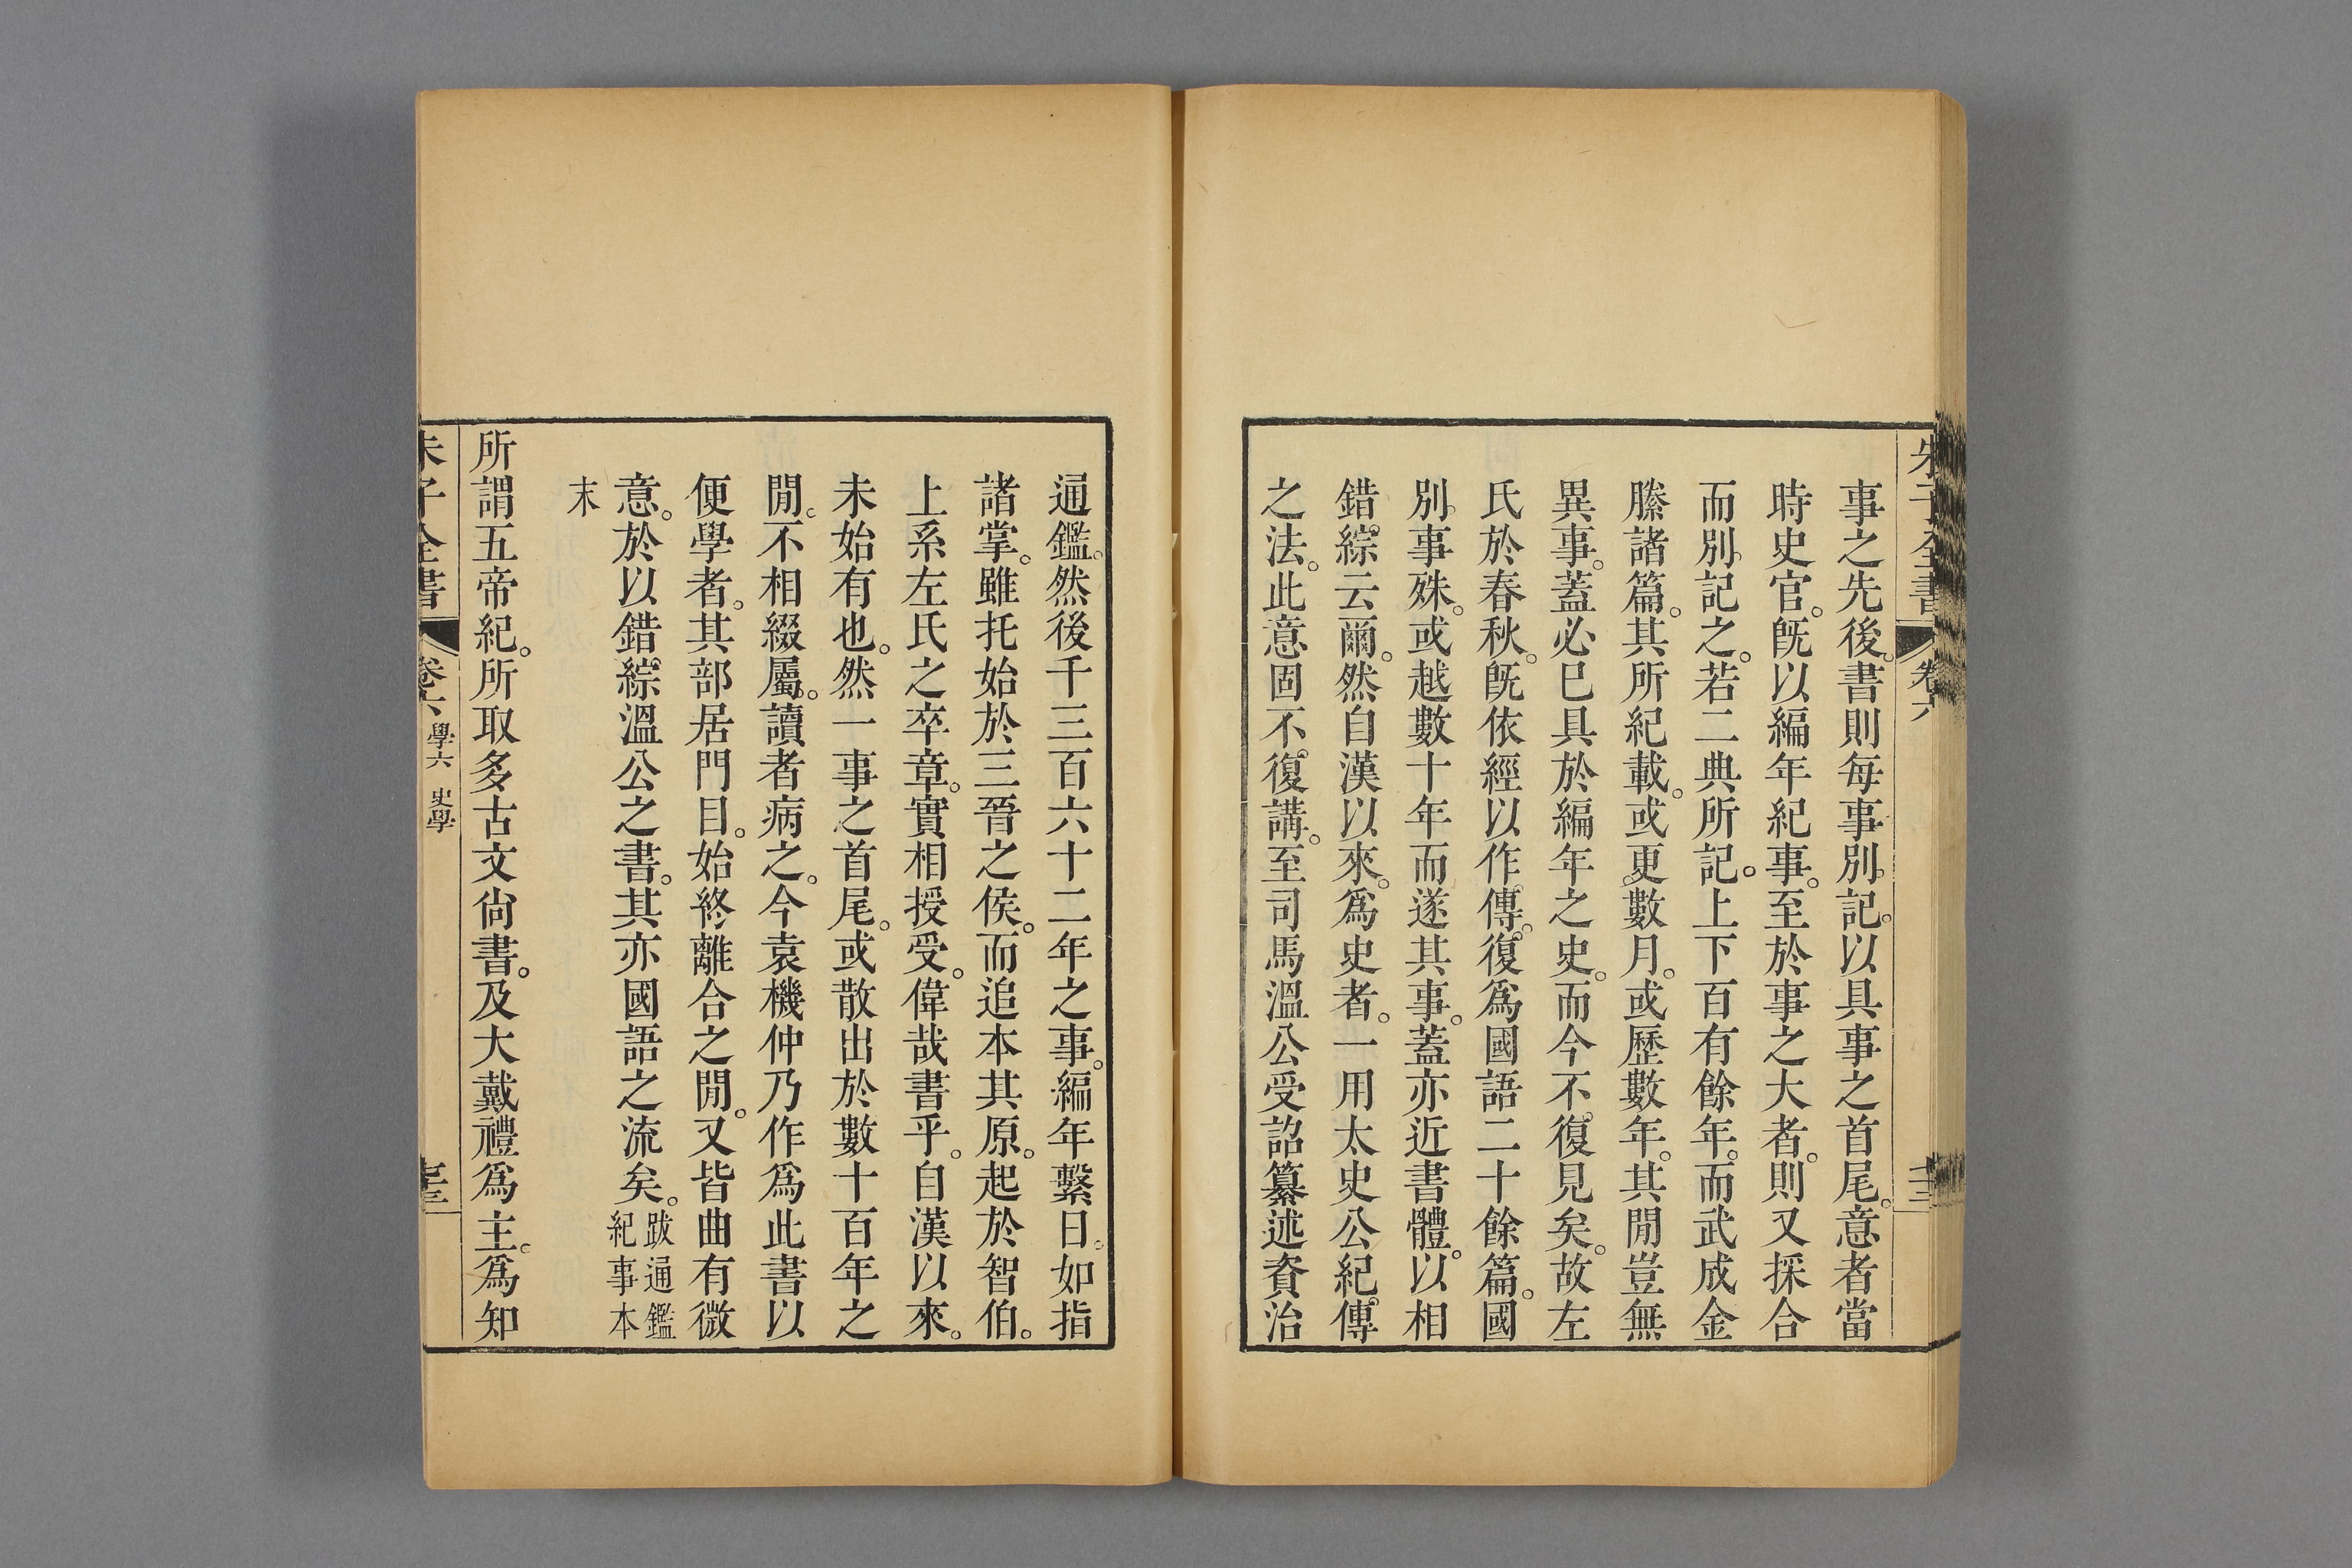 朱子全書 卷六
事之先後。書則每事別記。以具事之首尾。意者當
時史官。旣以編年紀事。至於事之大者。則又採合
而別記之。若二典所記。上下百有餘年。而武成金
縢諸篇。其所紀載。或更數月。或歷數年。其閒豈無
異事。蓋必已具於編年之史。而今不復見矣。故左
氏於春秋。旣依經以作傳。復爲國語二十餘篇。國
別事殊。或越數十年而遂其事。蓋亦近書體。以相
錯綜云爾。然自漢以來。爲史者。一用太史公紀傳
之法。此意固不復講。至司馬溫公受詔纂述資治
通鑑。然後千三百六十二年之事。編年繫日。如指
諸掌。雖托始於三晉之侯。而追本其原。起於智伯。
上系左氏之卒章。實相授受。偉哉書乎。自漢以來。
未始有也。然一事之首尾。或散出於數十百年之
閒。不相綴屬。讀者病之。今袁機仲乃作爲此書。以
便學者。其部居門目。始終離合之閒。又皆曲有微
意。於以錯綜溫公之書。其亦國語之流矣。跋通鑑
紀事本
末
所謂五帝紀。所取多古文尙書。及大戴禮爲主。爲知
朱子全書 卷六 學六 史學